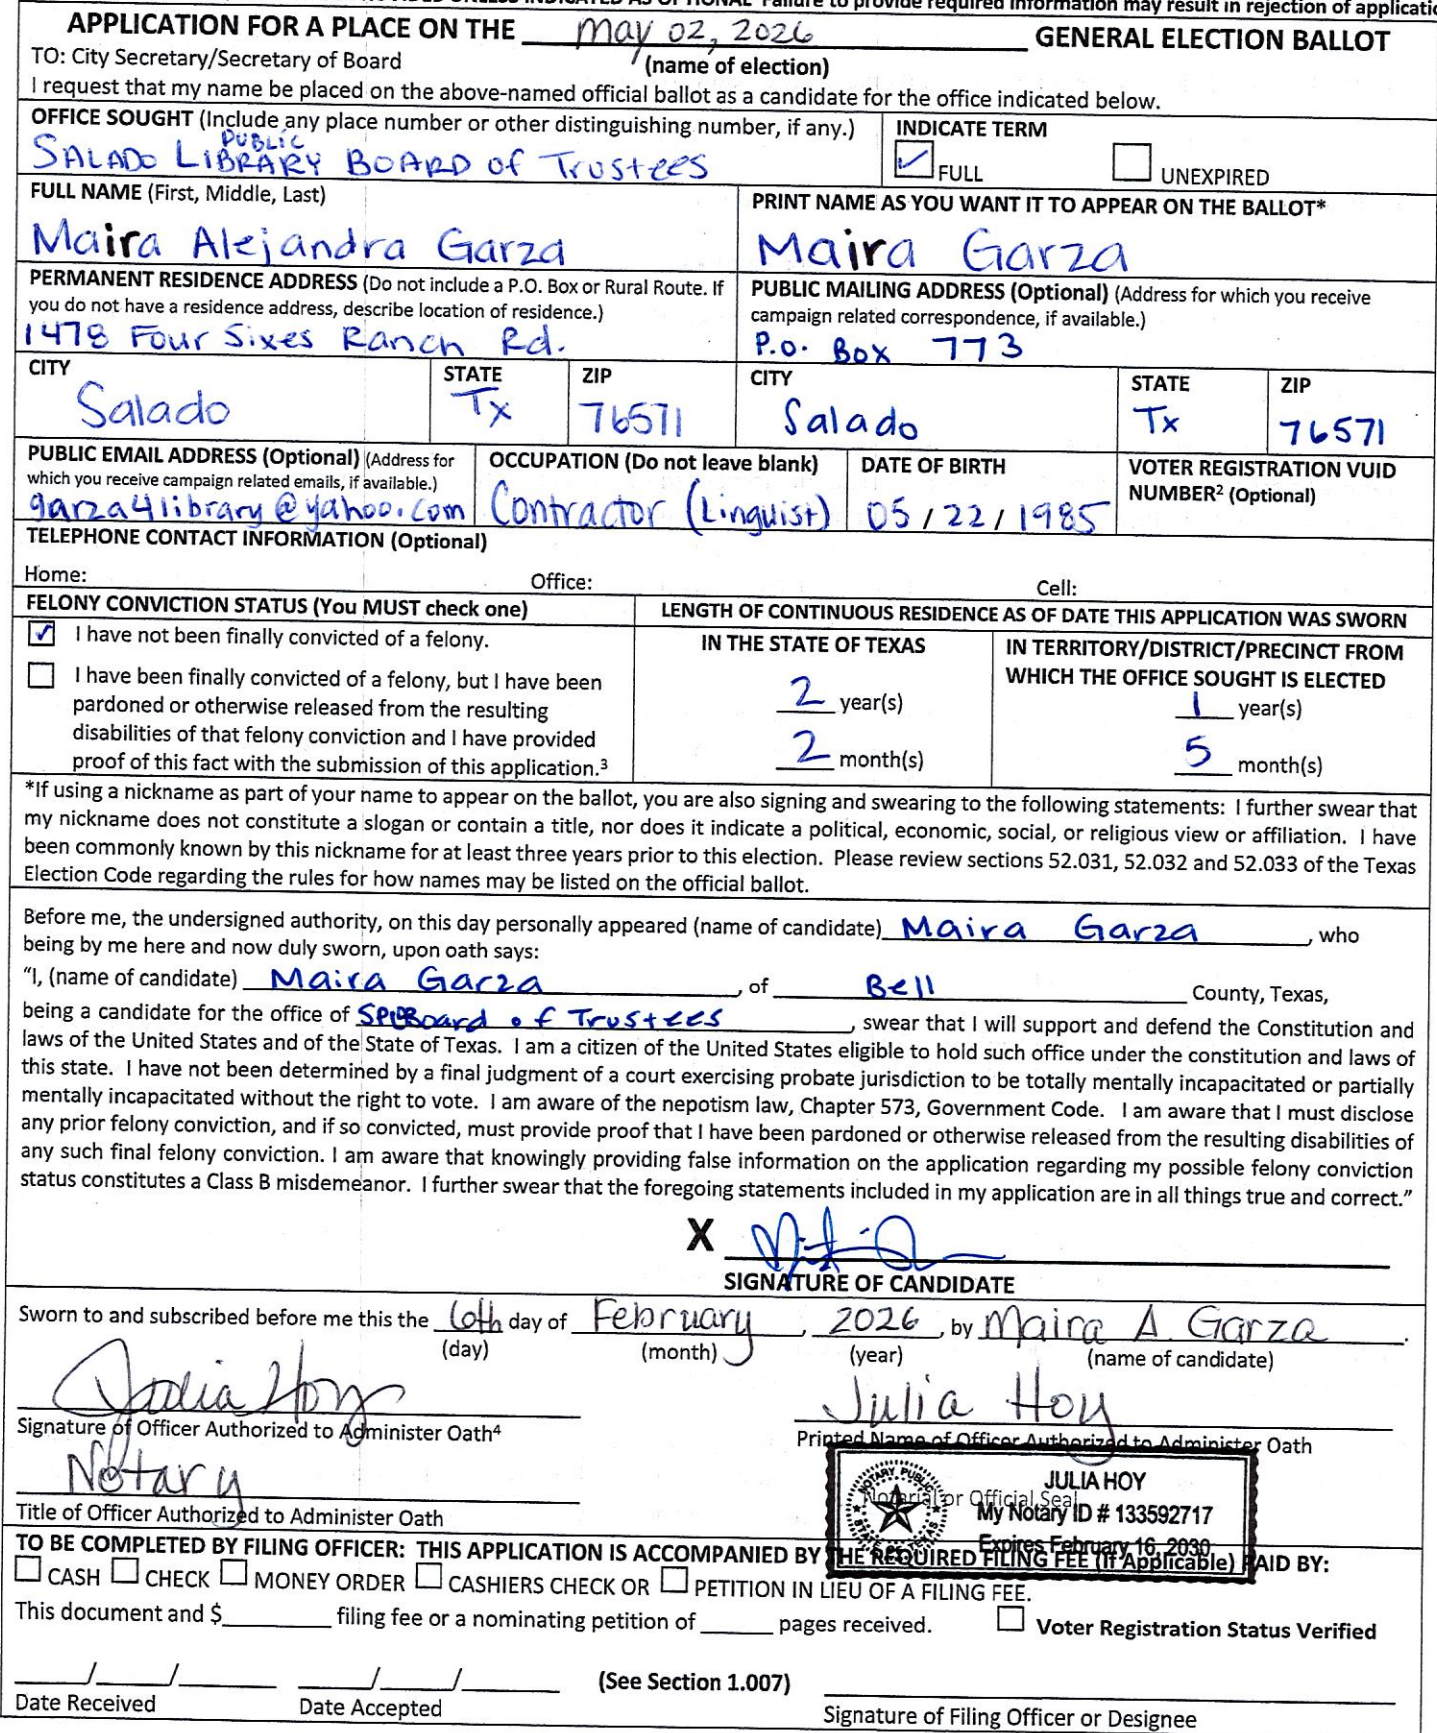 PROVIDED UNLESS INDICATED AS OPTIONAL Failure to provide required information may result in rejection of applicatio
APPLICATION FOR A PLACE ON THE May 02, 2026 GENERAL ELECTION BALLOT
TO: City Secretary/Secretary of Board (name of election)
I request that my name be placed on the above-named official ballot as a candidate for the office indicated below.
OFFICE SOUGHT (Include any place number or other distinguishing number, if any.)
SALADO PUBLIC LIBRARY BOARD of Trustees
INDICATE TERM
✓ FULL
UNEXPIRED
FULL NAME (First, Middle, Last)
Maira Alejandra Garza
PRINT NAME AS YOU WANT IT TO APPEAR ON THE BALLOT*
Maira Garza
PERMANENT RESIDENCE ADDRESS (Do not include a P.O. Box or Rural Route. If
you do not have a residence address, describe location of residence.)
1478 Four Sixes Ranch Rd.
PUBLIC MAILING ADDRESS (Optional) (Address for which you receive
campaign related correspondence, if available.)
P.O. Box 773
CITY
Salado
STATE
Tx
ZIP
76571
CITY
Salado
STATE
Tx
ZIP
76571
PUBLIC EMAIL ADDRESS (Optional) (Address for
which you receive campaign related emails, if available.)
garza4library@yahoo.com
OCCUPATION (Do not leave blank)
Contractor (Linguist)
DATE OF BIRTH
05/22/1985
VOTER REGISTRATION VUID
NUMBER² (Optional)
TELEPHONE CONTACT INFORMATION (Optional)
Home: Office: Cell:
FELONY CONVICTION STATUS (You MUST check one)
✓ I have not been finally convicted of a felony.
I have been finally convicted of a felony, but I have been
pardoned or otherwise released from the resulting
disabilities of that felony conviction and I have provided
proof of this fact with the submission of this application.³
LENGTH OF CONTINUOUS RESIDENCE AS OF DATE THIS APPLICATION WAS SWORN
IN THE STATE OF TEXAS
2 year(s)
2 month(s)
IN TERRITORY/DISTRICT/PRECINCT FROM
WHICH THE OFFICE SOUGHT IS ELECTED
1 year(s)
5 month(s)
*If using a nickname as part of your name to appear on the ballot, you are also signing and swearing to the following statements: I further swear that
my nickname does not constitute a slogan or contain a title, nor does it indicate a political, economic, social, or religious view or affiliation. I have
been commonly known by this nickname for at least three years prior to this election. Please review sections 52.031, 52.032 and 52.033 of the Texas
Election Code regarding the rules for how names may be listed on the official ballot.
Before me, the undersigned authority, on this day personally appeared (name of candidate) Maira Garza, who
being by me here and now duly sworn, upon oath says:
"I, (name of candidate) Maira Garza, of Bell County, Texas,
being a candidate for the office of Board of Trustees, swear that I will support and defend the Constitution and
laws of the United States and of the State of Texas. I am a citizen of the United States eligible to hold such office under the constitution and laws of
this state. I have not been determined by a final judgment of a court exercising probate jurisdiction to be totally mentally incapacitated or partially
mentally incapacitated without the right to vote. I am aware of the nepotism law, Chapter 573, Government Code. I am aware that I must disclose
any prior felony conviction, and if so convicted, must provide proof that I have been pardoned or otherwise released from the resulting disabilities of
any such final felony conviction. I am aware that knowingly providing false information on the application regarding my possible felony conviction
status constitutes a Class B misdemeanor. I further swear that the foregoing statements included in my application are in all things true and correct."
X
SIGNATURE OF CANDIDATE
Sworn to and subscribed before me this the 6th day of February, 2026, by Maira A. Garza.
(day) (month) (year) (name of candidate)
Julia Hoy
Signature of Officer Authorized to Administer Oath⁴
Julia Hoy
Printed Name of Officer Authorized to Administer Oath
Notary
Title of Officer Authorized to Administer Oath
Notarial or Official Seal
NOTARY PUBLIC
STATE OF TEXAS
JULIA HOY
My Notary ID # 133592717
Expires February 16, 2030
TO BE COMPLETED BY FILING OFFICER: THIS APPLICATION IS ACCOMPANIED BY THE REQUIRED FILING FEE (If Applicable) PAID BY:
CASH CHECK MONEY ORDER CASHIERS CHECK OR PETITION IN LIEU OF A FILING FEE.
This document and $ filing fee or a nominating petition of pages received. Voter Registration Status Verified
/ / / / (See Section 1.007)
Date Received Date Accepted Signature of Filing Officer or Designee